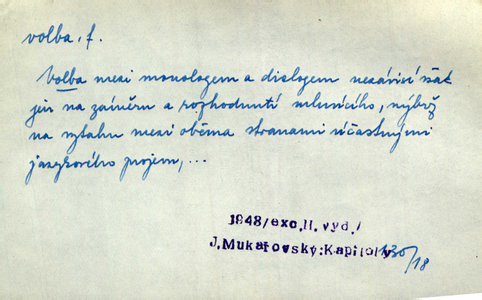 volba, f.
Volba mezi monologem a dialogem nezávisí však
jen na záměru a rozhodnutí mluvícího, nýbrž
na vztahu mezi oběma stranami účastnými
jazykového projevu, ...
1948/exc.II.vyd./
J.Mukařovský:Kapitoly
130/18